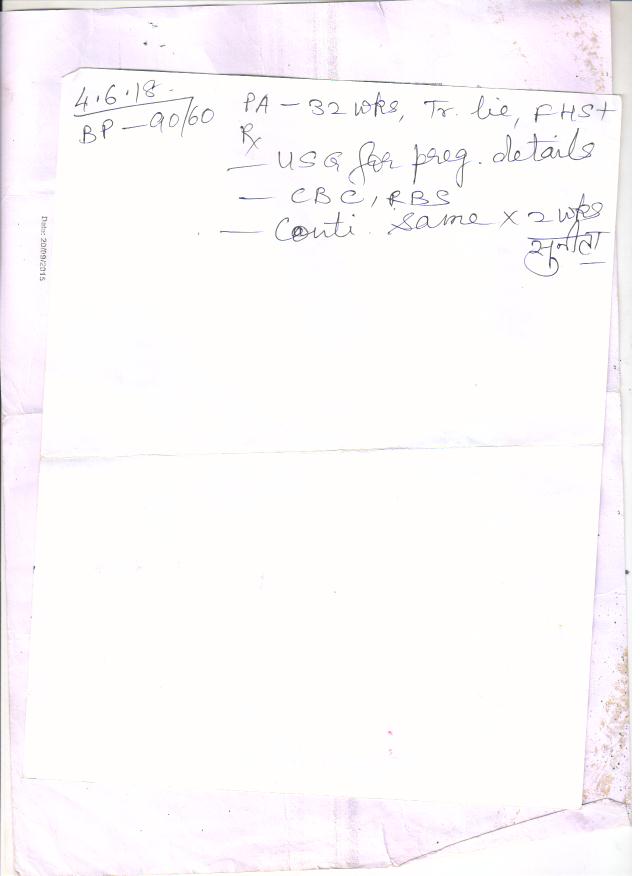 4.6.18.
BP - 90/60
PA - 32 wks, Tr. lie, FHS+
Rx
- USG for preg. details
- CBC, RBS
- Conti. same x 2 wks
सुनीता
Date: 20/09/2015